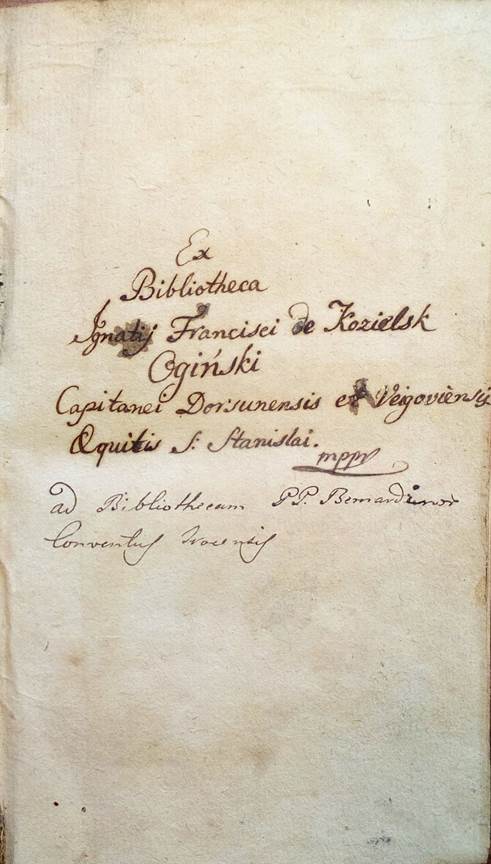 Ex
Bibliotheca
Ignatij Francisci de Kozielsk
Ogiński
Capitanei Dorsunensis et Veigoviensis
Equitis S: Stanislai.
mppr
ad Bibliothecam PP. Bernardinor
Conventus Trocensis